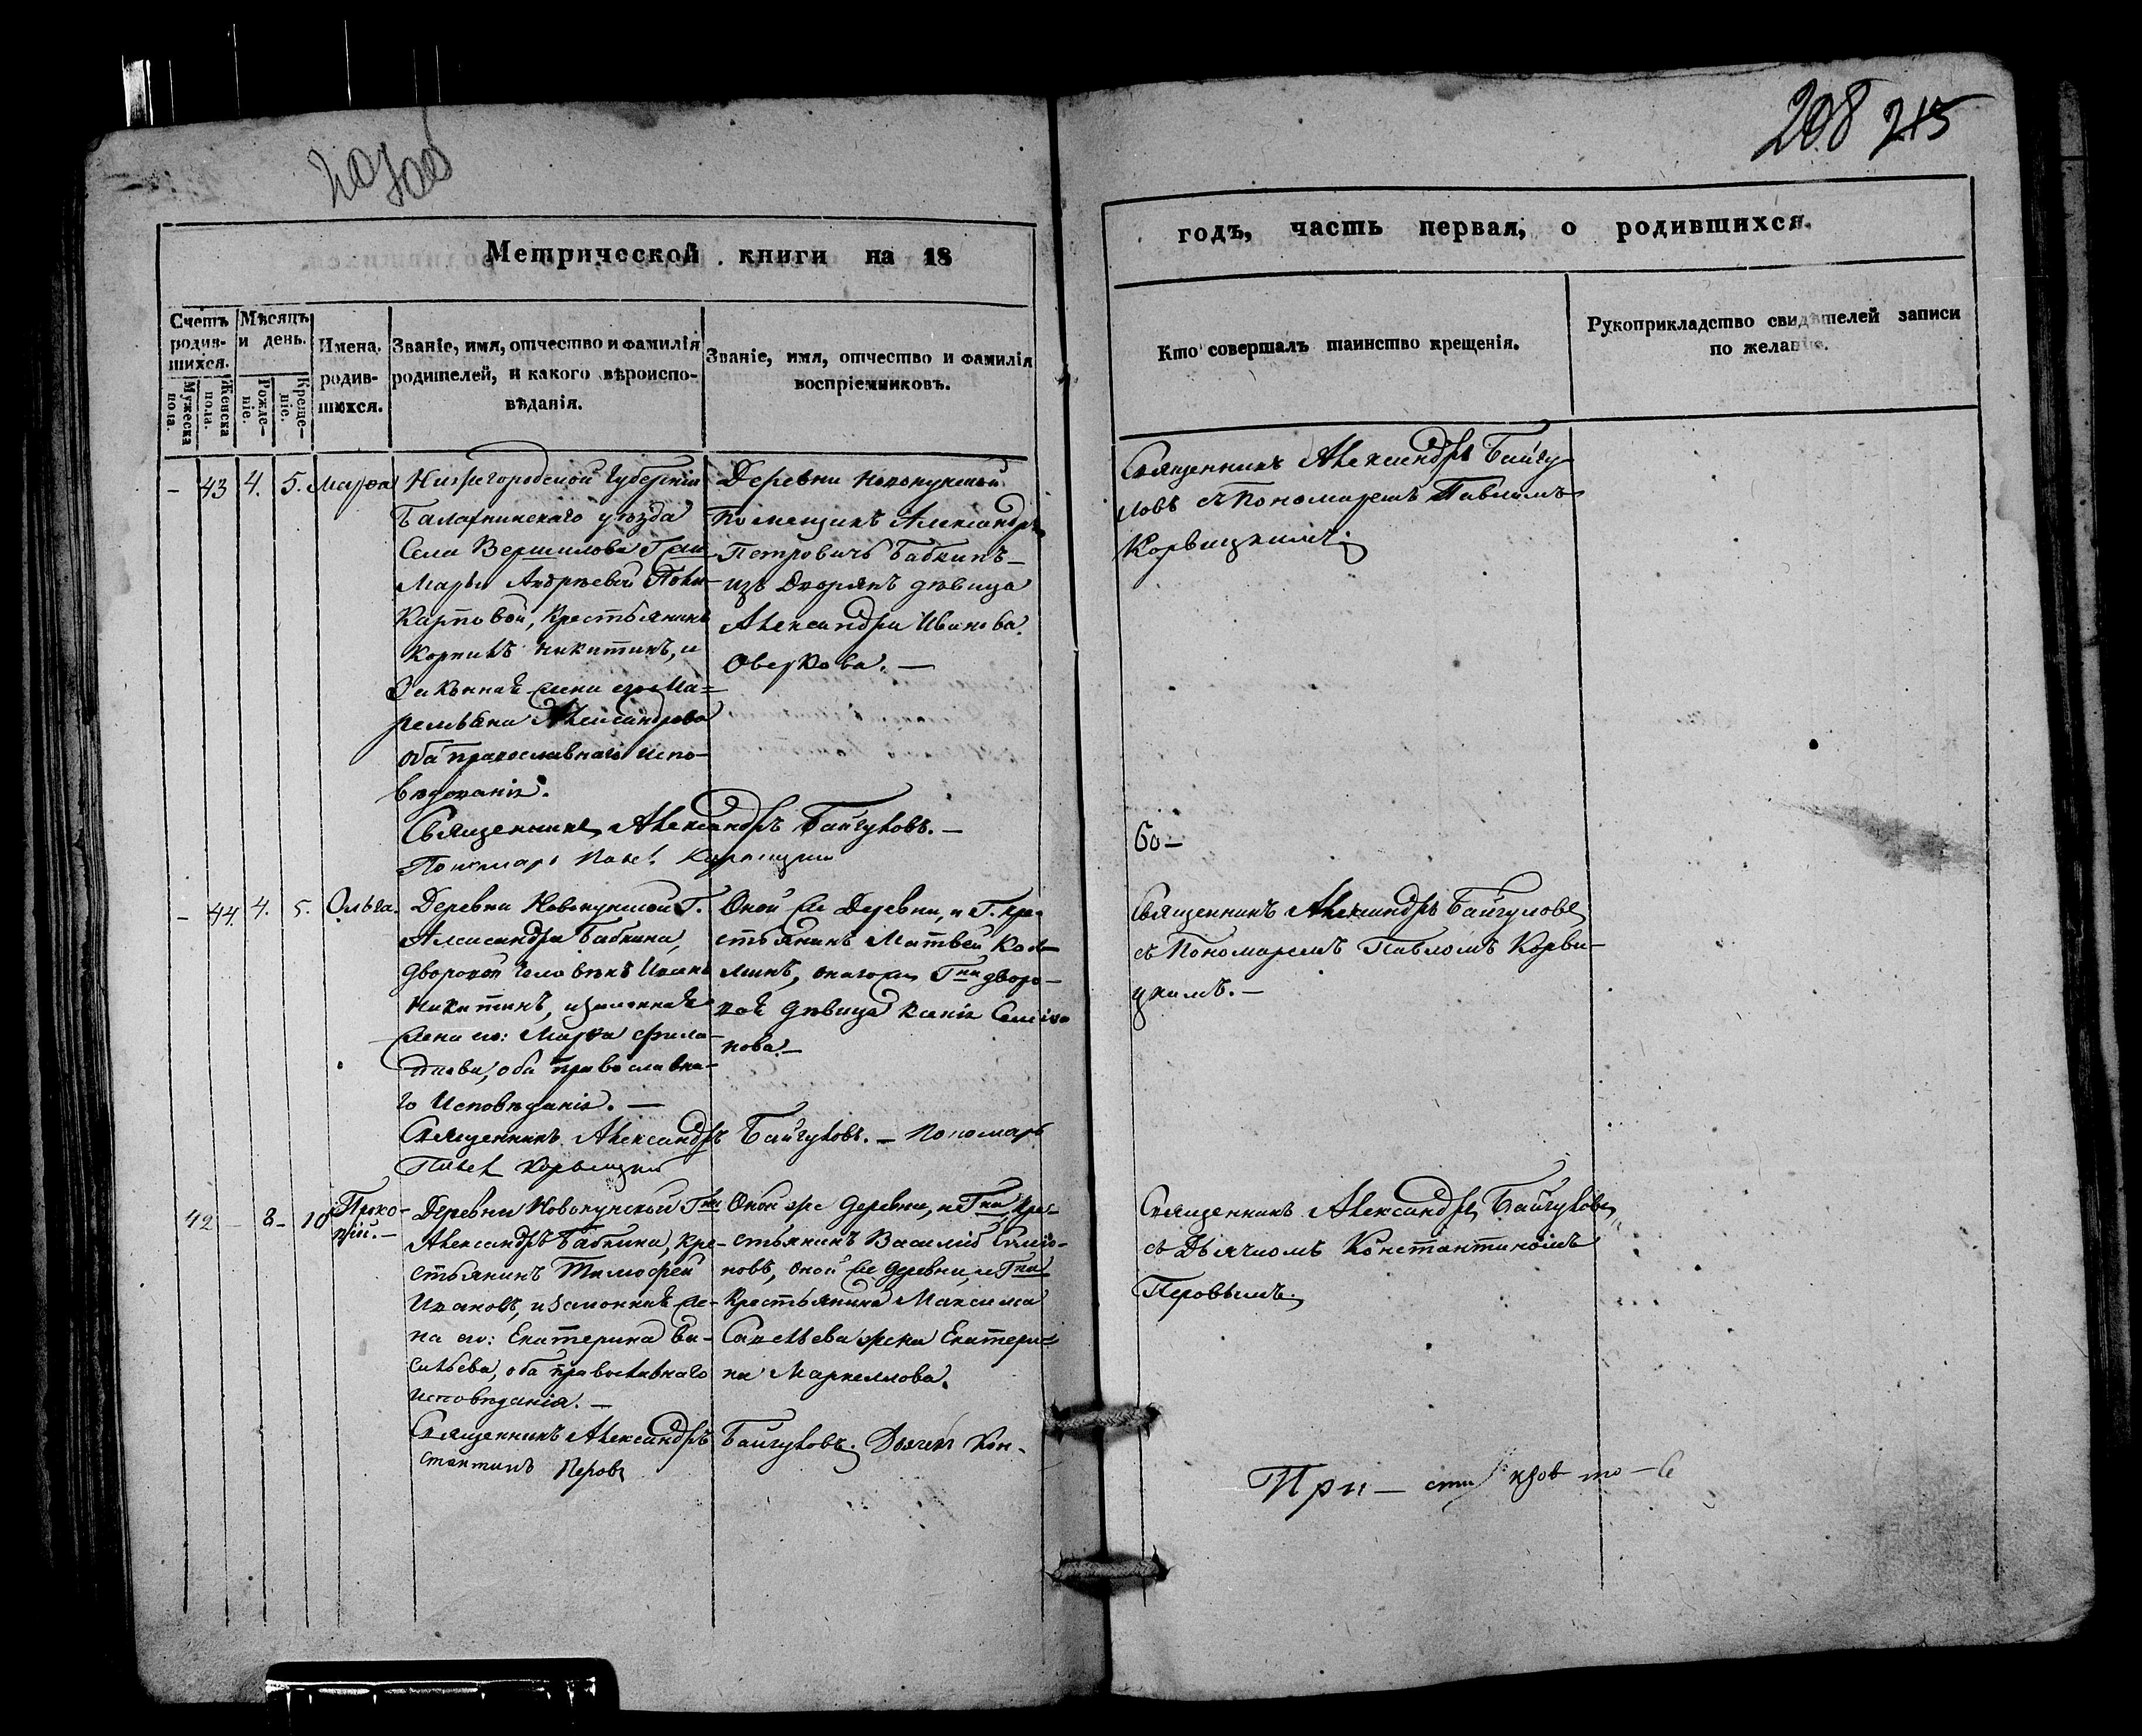 207об
208 215
Метрической книги на 18
годъ, часть первая, о родившихся.
Счетъ родив-шихся.
Мужеска пола.
Женска пола.
Мѣсяцъ и день.
Рожде-ніе.
Креще-ніе.
Имена родив-шихся.
Званіе, имя, отчество и фамилія
родителей, и какого вѣроиспо-
вѣданія.
Званіе, имя, отчество и фамилія
воспріемниковъ.
Кто совершалъ таинство крещенія.
Рукоприкладство свидѣтелей записи
по желанію.
- 43 4. 5. Марѳа
Нижегородской Губерніи
Балахнинскаго уѣзда
Села Вершилова Гжи
Марьи Андреевой Поли-
карповой, Крестьянинъ
Корнилъ Никитинъ, и
законная жена его Ма-
Александрова
оба православнаго испо-
вѣданія.
Священникъ Александръ Байгуловъ. —
Пономарь Павелъ Корвицкій
Деревни Новокупской
помещикъ Александръ
Петровичь Бабкинъ —
изъ Дворянъ девица
Александра Иванова
Оверкова. —
Священникъ Александръ Байгу-
ловъ съ Пономаремъ Павломъ
Корвицкимъ.
- 44. 4. 5. Ольга.
Деревни Новокупской Г.
Александра Бабкина,
дворовой человѣкъ Иванъ
Никитинъ, и законная
жена его: Марѳа Фила-
това, оба православна-
го Исповѣданія. —
Священникъ Александръ Байгуловъ. — Пономарь
Павелъ Корвицкій
Оной же Деревни, и Г. кре-
стьянинъ Матвей
онагоже Гна дворо-
вая девица Ксенія Семіо
нова. —
Священникъ Александръ Байгуловъ
съ Пономаремъ Павломъ Корви-
цкимъ. —
42 - 8 - 10 Проко-
пій. —
Деревни Новокупской Гна
Александра Бабкина, кре-
стьянинъ Тимофей
Ивановъ, и законная же-
на его: Екатерина Ва-
сильева, оба православнаго
исповѣданія. —
Священникъ Александръ Байгуловъ. Дьячекъ Кон-
стантинъ Перовъ
Оной же деревни, и Гна Кре-
стьянинъ Василій Семіо-
новъ, оной же деревни, и Гна
Крестьянина Максима
Савельева жена Екатери-
на Маркеллова.
Священникъ Александръ Байгуловъ
съ Дьячкомъ Константиномъ
Перовымъ.
При —